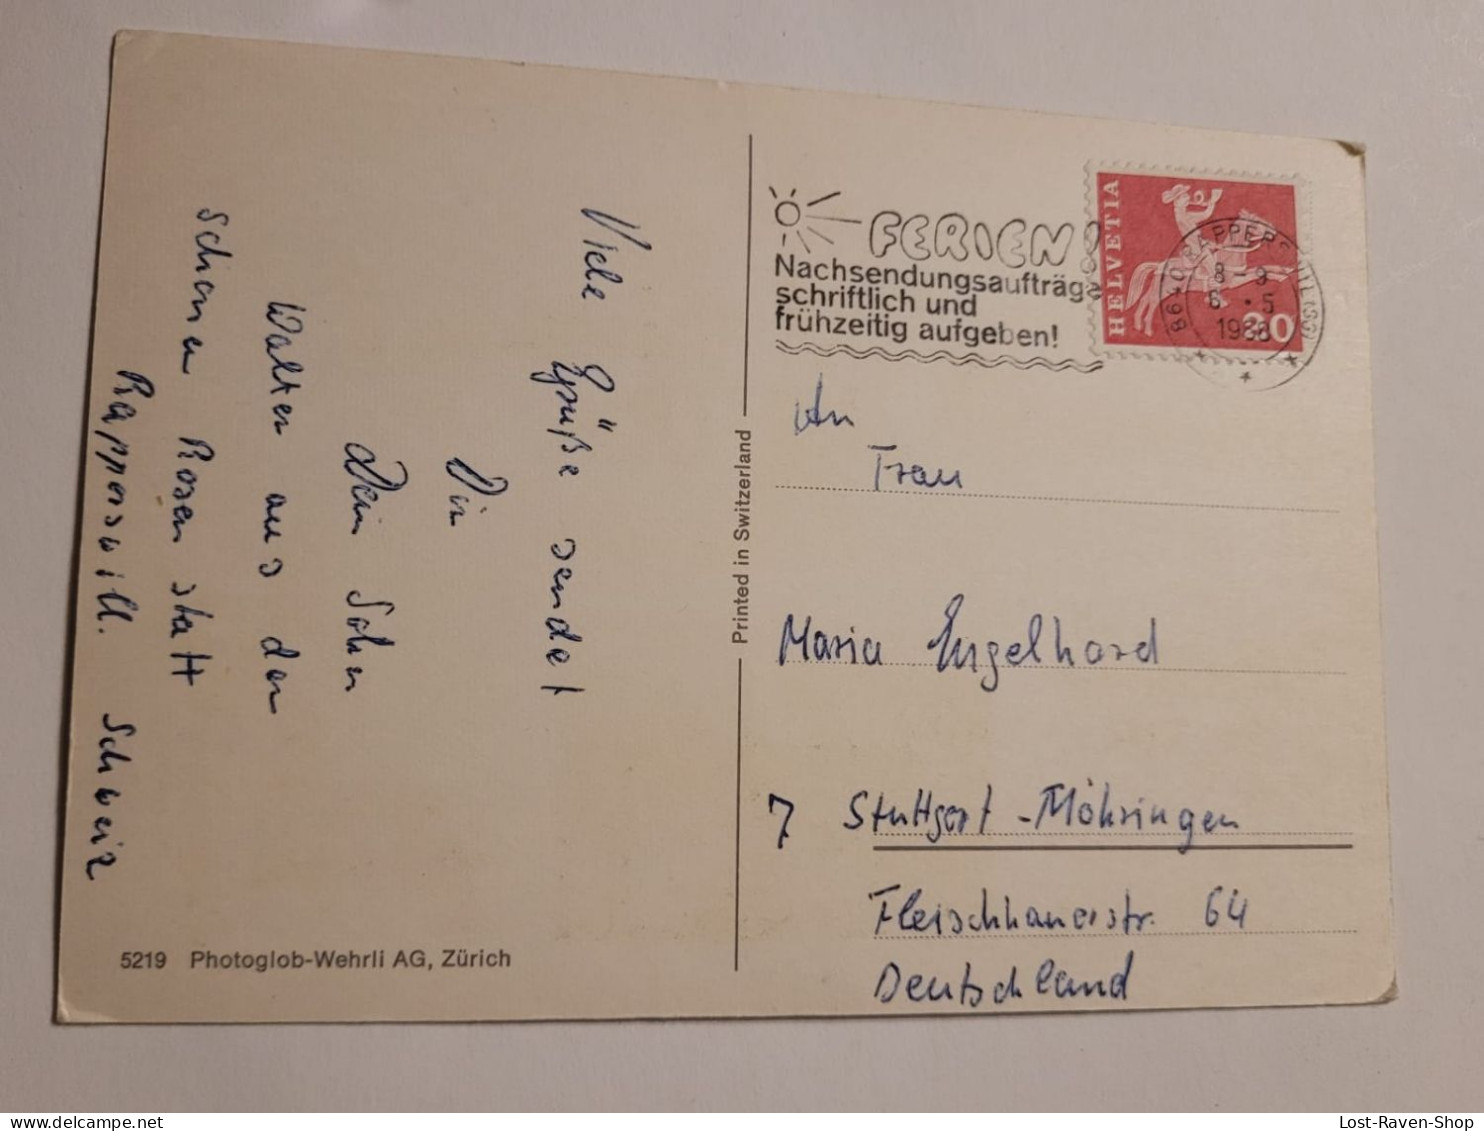 Viele
Grüße sendet
Dir
Dein Sohn
Walter aus der
schönen Rosenstadt
Rapperswill. Schweiz
5219 Photoglob-Wehrli AG, Zürich
Printed in Switzerland
FERIEN
Nachsendungsaufträge
schriftlich und
frühzeitig aufgeben!
HELVETIA
8640 RAPPERSWIL (SG)
8-9
6.-5
30
An
Frau
Maria Engelhard
7 Stuttgart-Möhringen
Fleischhauerstr. 64
Deutschland
Lost-Raven-Shop